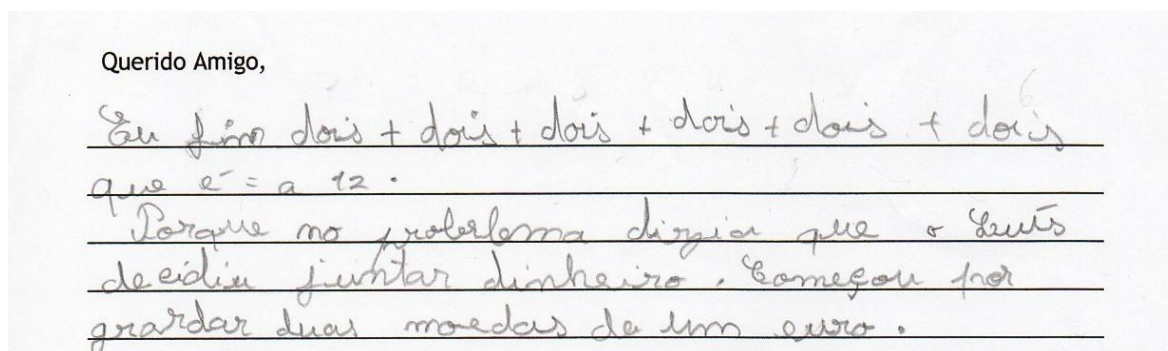 Querido Amigo,
Eu fim dois + dois + dois + dois + dois + dois
que é = a 12.
Porque no proberlema dizia que o Luís
decidiu juntar dinheiro. Começou por
grardar duas moedas de um euro.